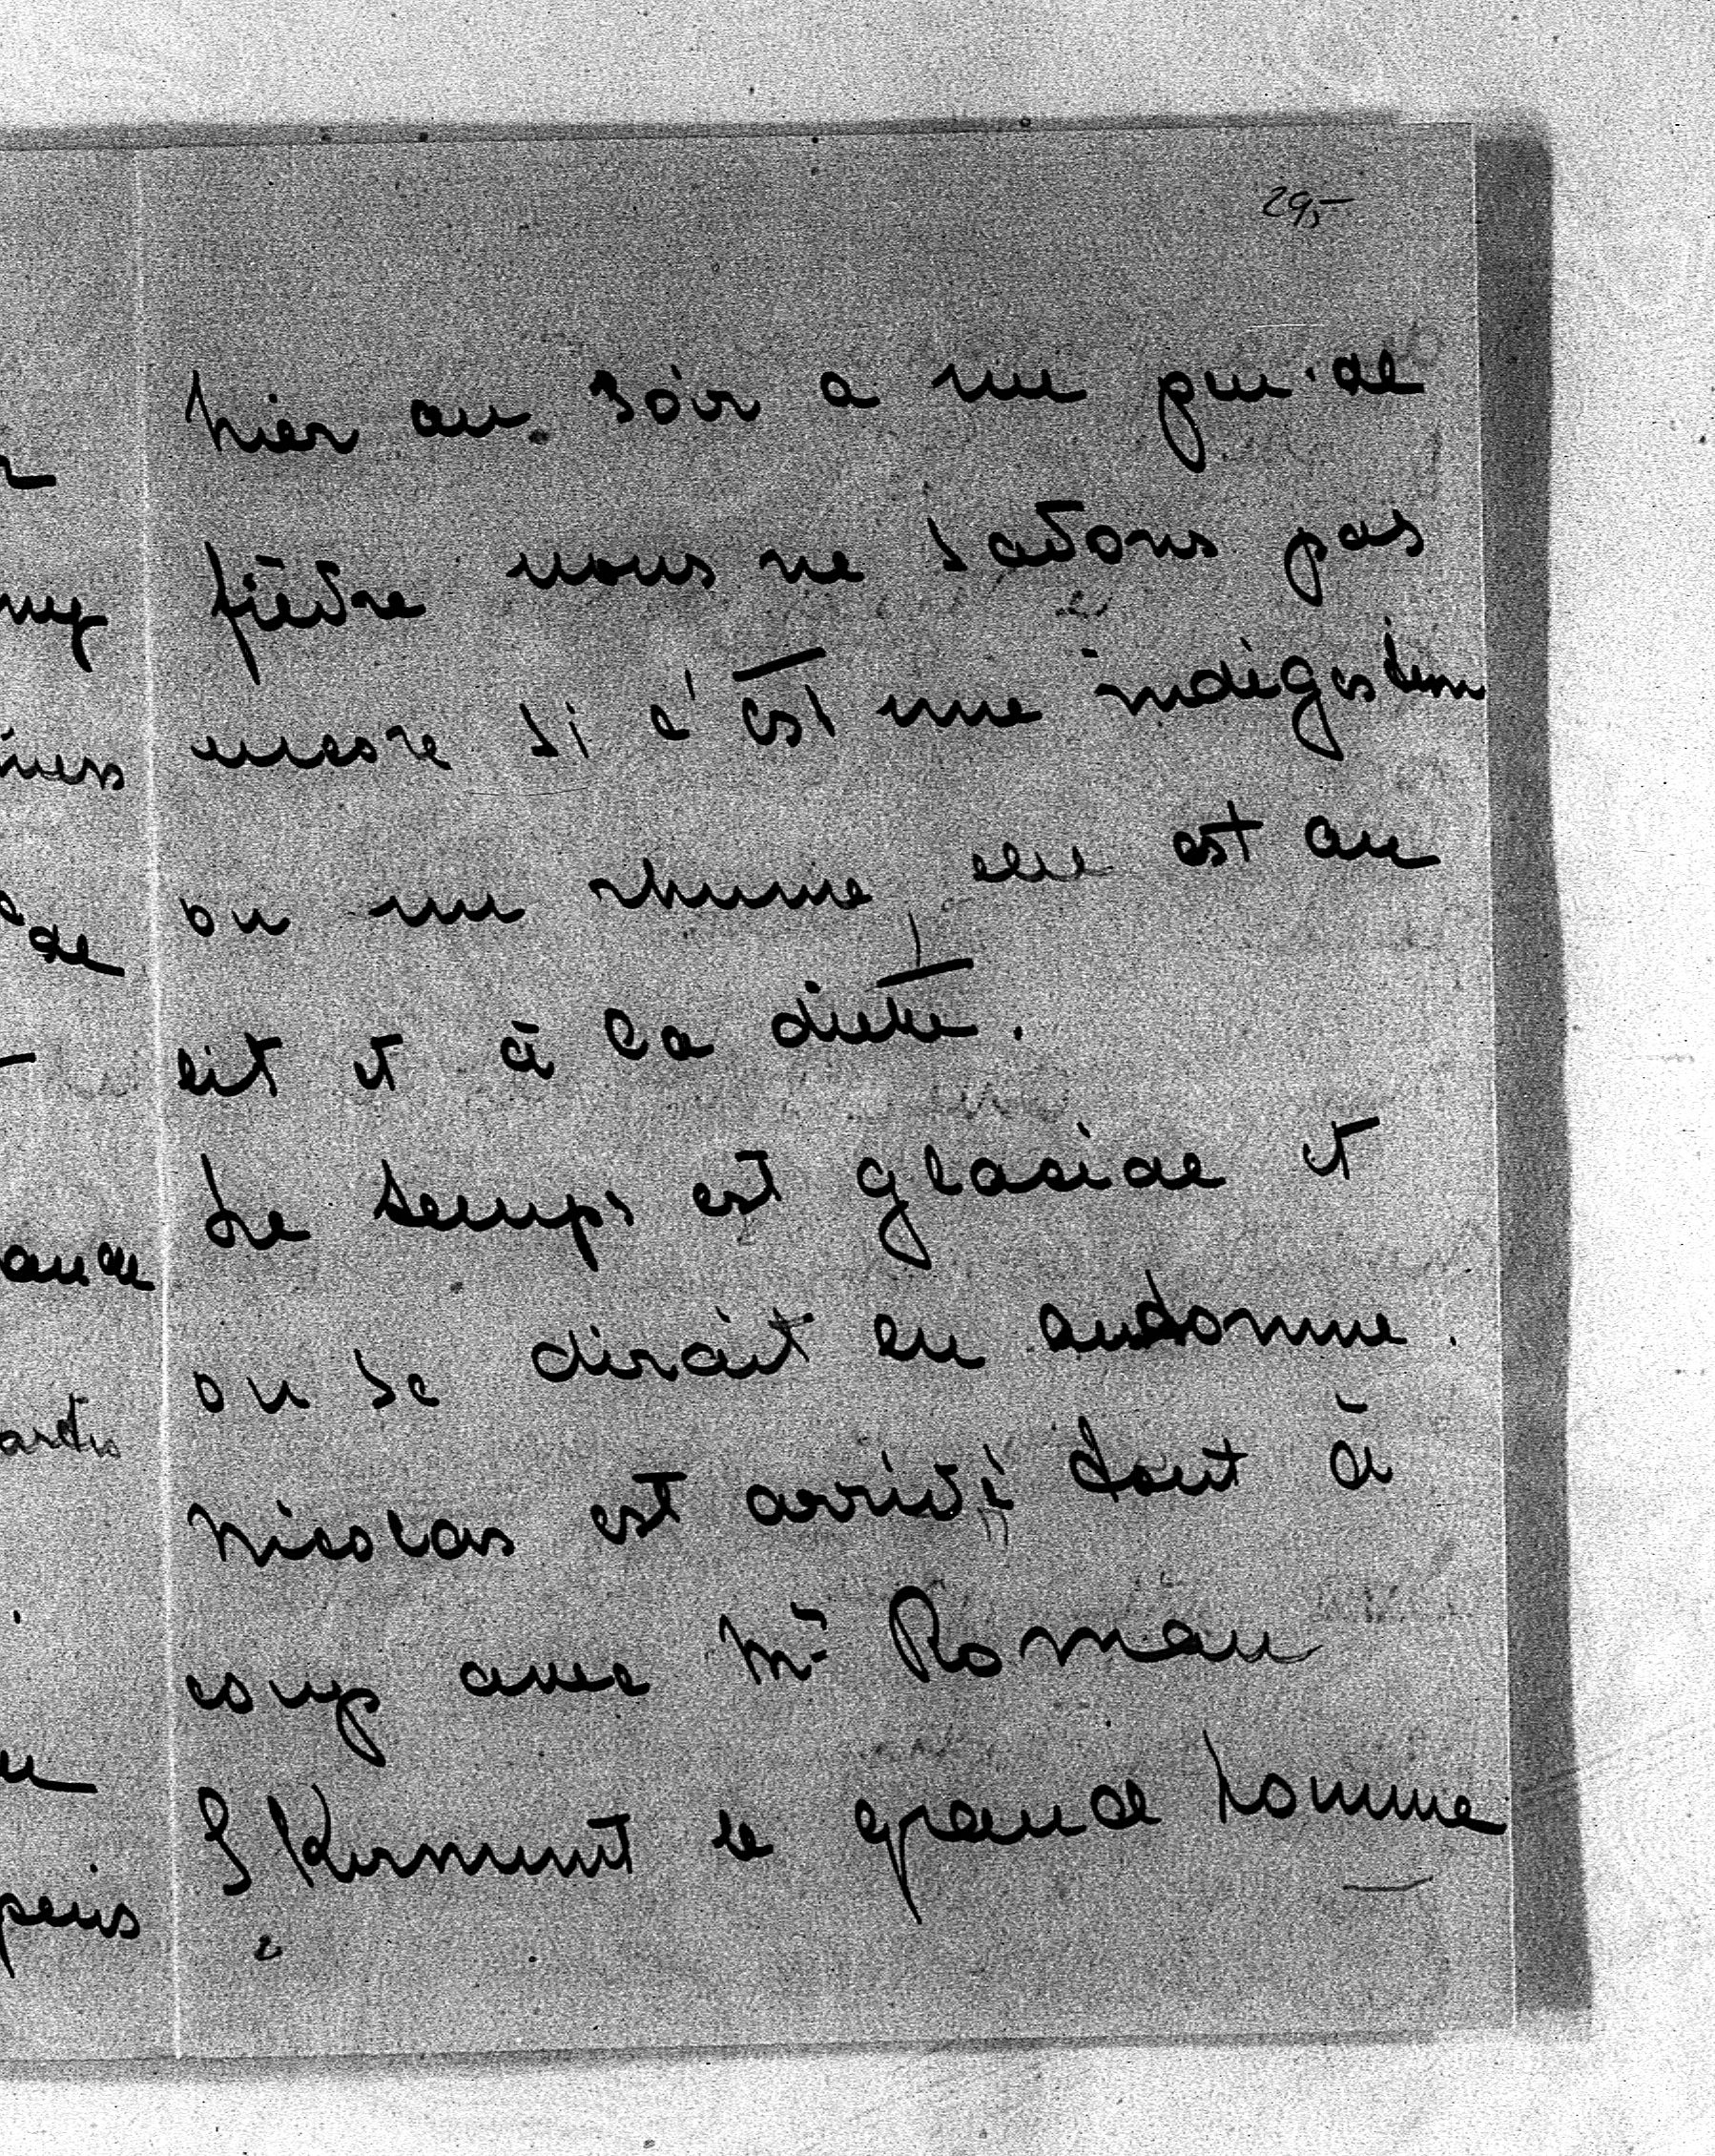 29,-
hier au soir a un peu de
fièvre nous ne savons pas
encore si c'est une indigestion
ou un rhume elle est au
lit et à la diète.
Le temps est glaciale et
on se dirait en automne.
Nicolas est arrivé tout à
coup avec Mr Roman
Skirmunt le grand homme
de
ande
puis